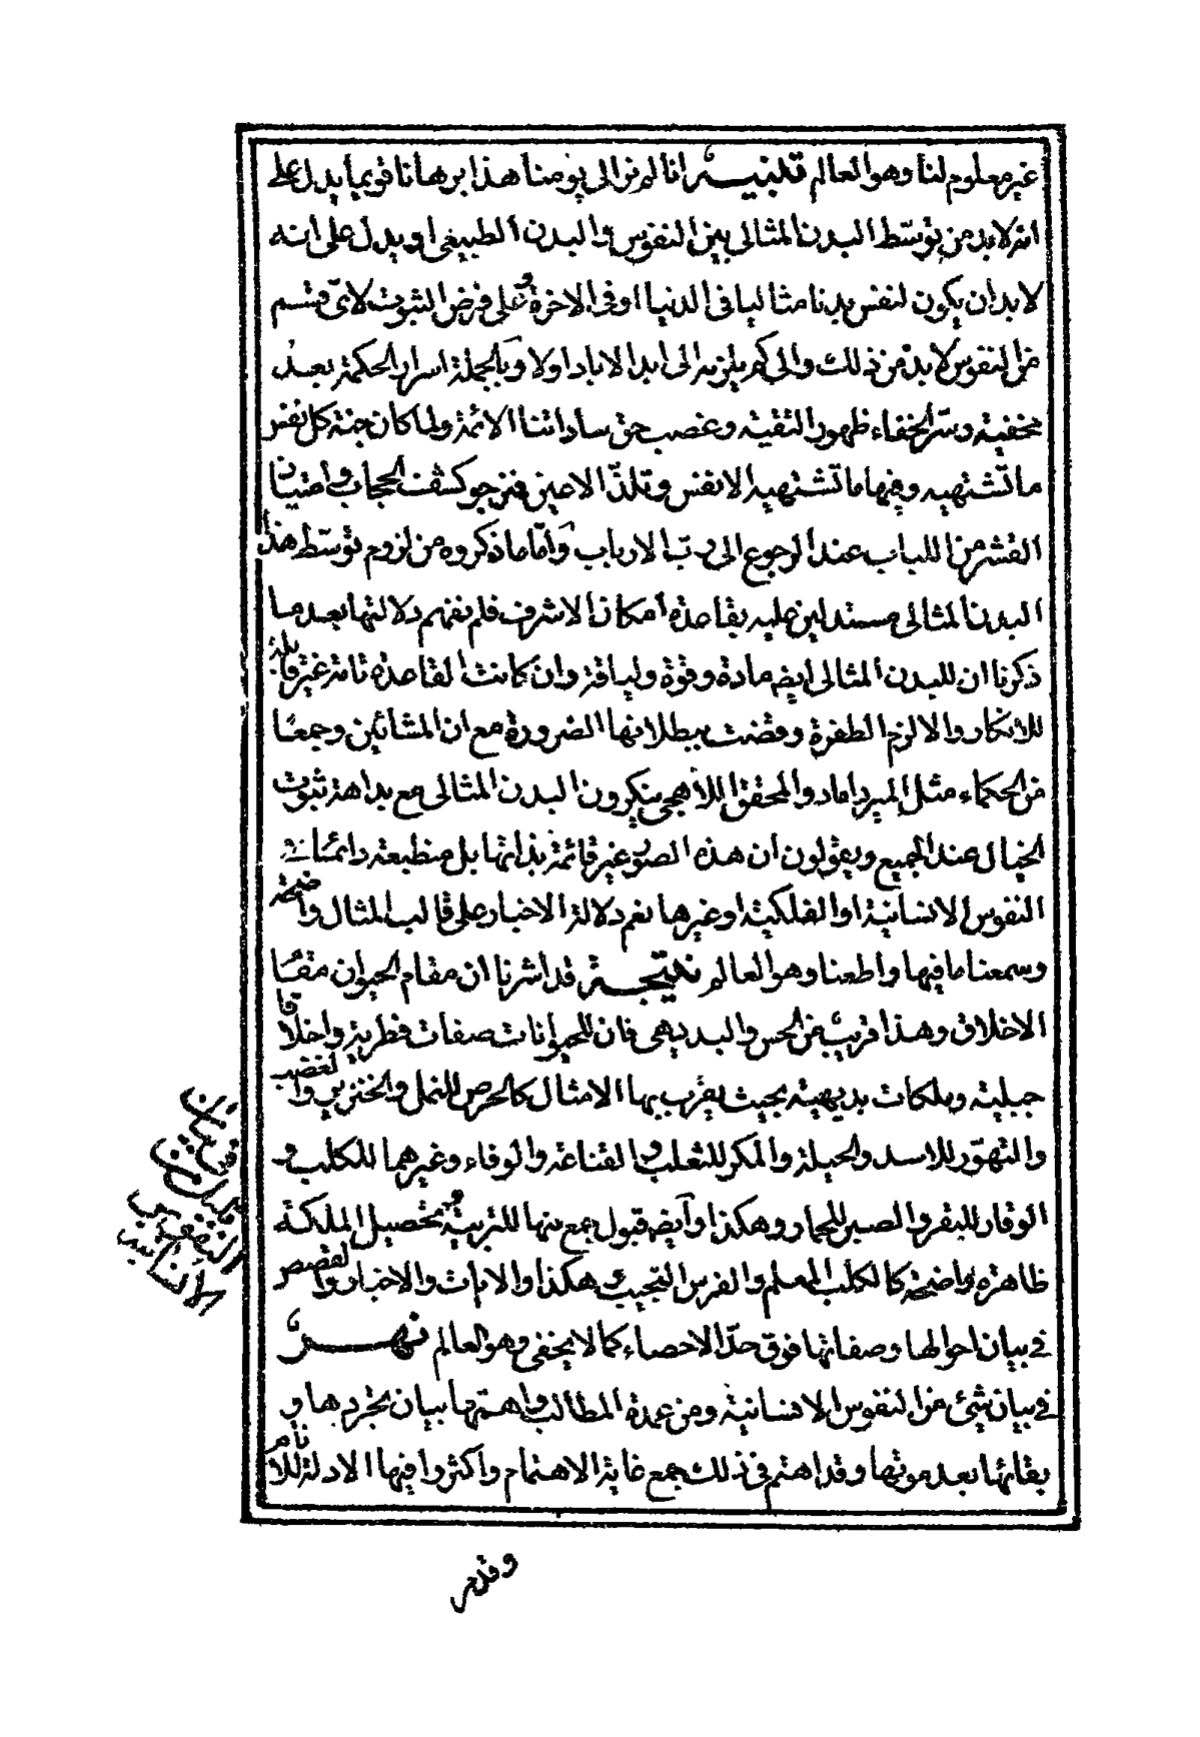 غير معلوم لنا وهو العالم تنبيه انا لم نر الى يومنا هذا برهانا قويما يدل على
انه لابد من توسّط البدن المثالى بين النفوس والبدن الطبيعى او يدل على انه
لا بد ان يكون لنفس بدنا مثاليا فى الدنيا او فى الاخرة وعلى فرض الثبوت لاىّ قسم
من النفوس لا بدّ من ذلك والى كم يلزمه الى ابد الاباد اولا وبالجملة اسرار الحكمة بعد
مخفيّة وسرّ الخفاء ظهور التقيّة وغصب حق ساداتنا الائمة ولما كان جنة كل نفس
ما تشتهيه وفيها ما تشتهيه الانفس وتلذّ الاعين فنرجو كشف الحجاب وامتياز
القشر من اللباب عند الرجوع الى ربّ الارباب وامّا ما ذكروه من لزوم توسّط هذا
البدن المثالى مستدلين عليه بقاعدة امكان الاشرف فلم نفهم دلالتها بعد ما
ذكرنا ان للبدن المثالى ايضا مادة وقوة ولياقة وان كانت القاعدة تامة غير قابلة
للانكار والا لزم الطفرة وقضت ببطلانها الضرورة مع ان المشائين وجمعا
من الحكماء مثل المير داماد والمحقق اللاهجى ينكرون البدن المثالى مع بداهة ثبوت
الخيال عند الجميع ويقولون ان هذه الصور غير قائمة بذاتها بل منطبعة دائما فى
النفوس الانسانية او الفلكية او غيرها نعم دلالة الاخبار على قالب المثال واضحة
وسمعنا ما فيها واطعنا وهو العالم نتيجة قد اشرنا ان مقام الحيوان مقام
الاخلاق وهذا قريب من الحس والبديهى فان للحيوانات صفات فطرية واخلاقا
جبلية وملكات بديهية بحيث يضرب بها الامثال كالحرص للنمل والخنزير والغضب
والتهوّر للاسد والحيلة والمكر للثعلب والقناعة والوفاء وغيرهما للكلب و
الوقار للبقر والصبر للحمار وهكذا وايضا قبول جمع منها للتربية وتحصيل الملكة
ظاهرة واضحة كالكلب المعلم والفرس النجيب وهكذا والايات والاخبار والقصص
فى بيان احوالها وصفاتها فوق حدّ الاحصاء كما لا يخفى وهو العالم نهر
فى بيان شئ من النفوس الانسانية ومن عمدة المطالب واهمها بيان تجردها و
بقائها بعد موتها وقد اهتم فى ذلك جمع غاية الاهتمام واكثروا فيها الادلة
النفوس
الانسانية